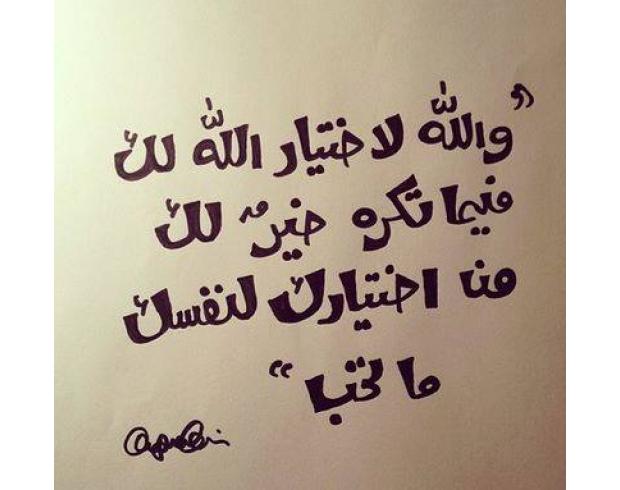 "والله لاختيار الله لك
فيما تكره خيرٌ لك
من اختيارك لنفسك
ما تحب"